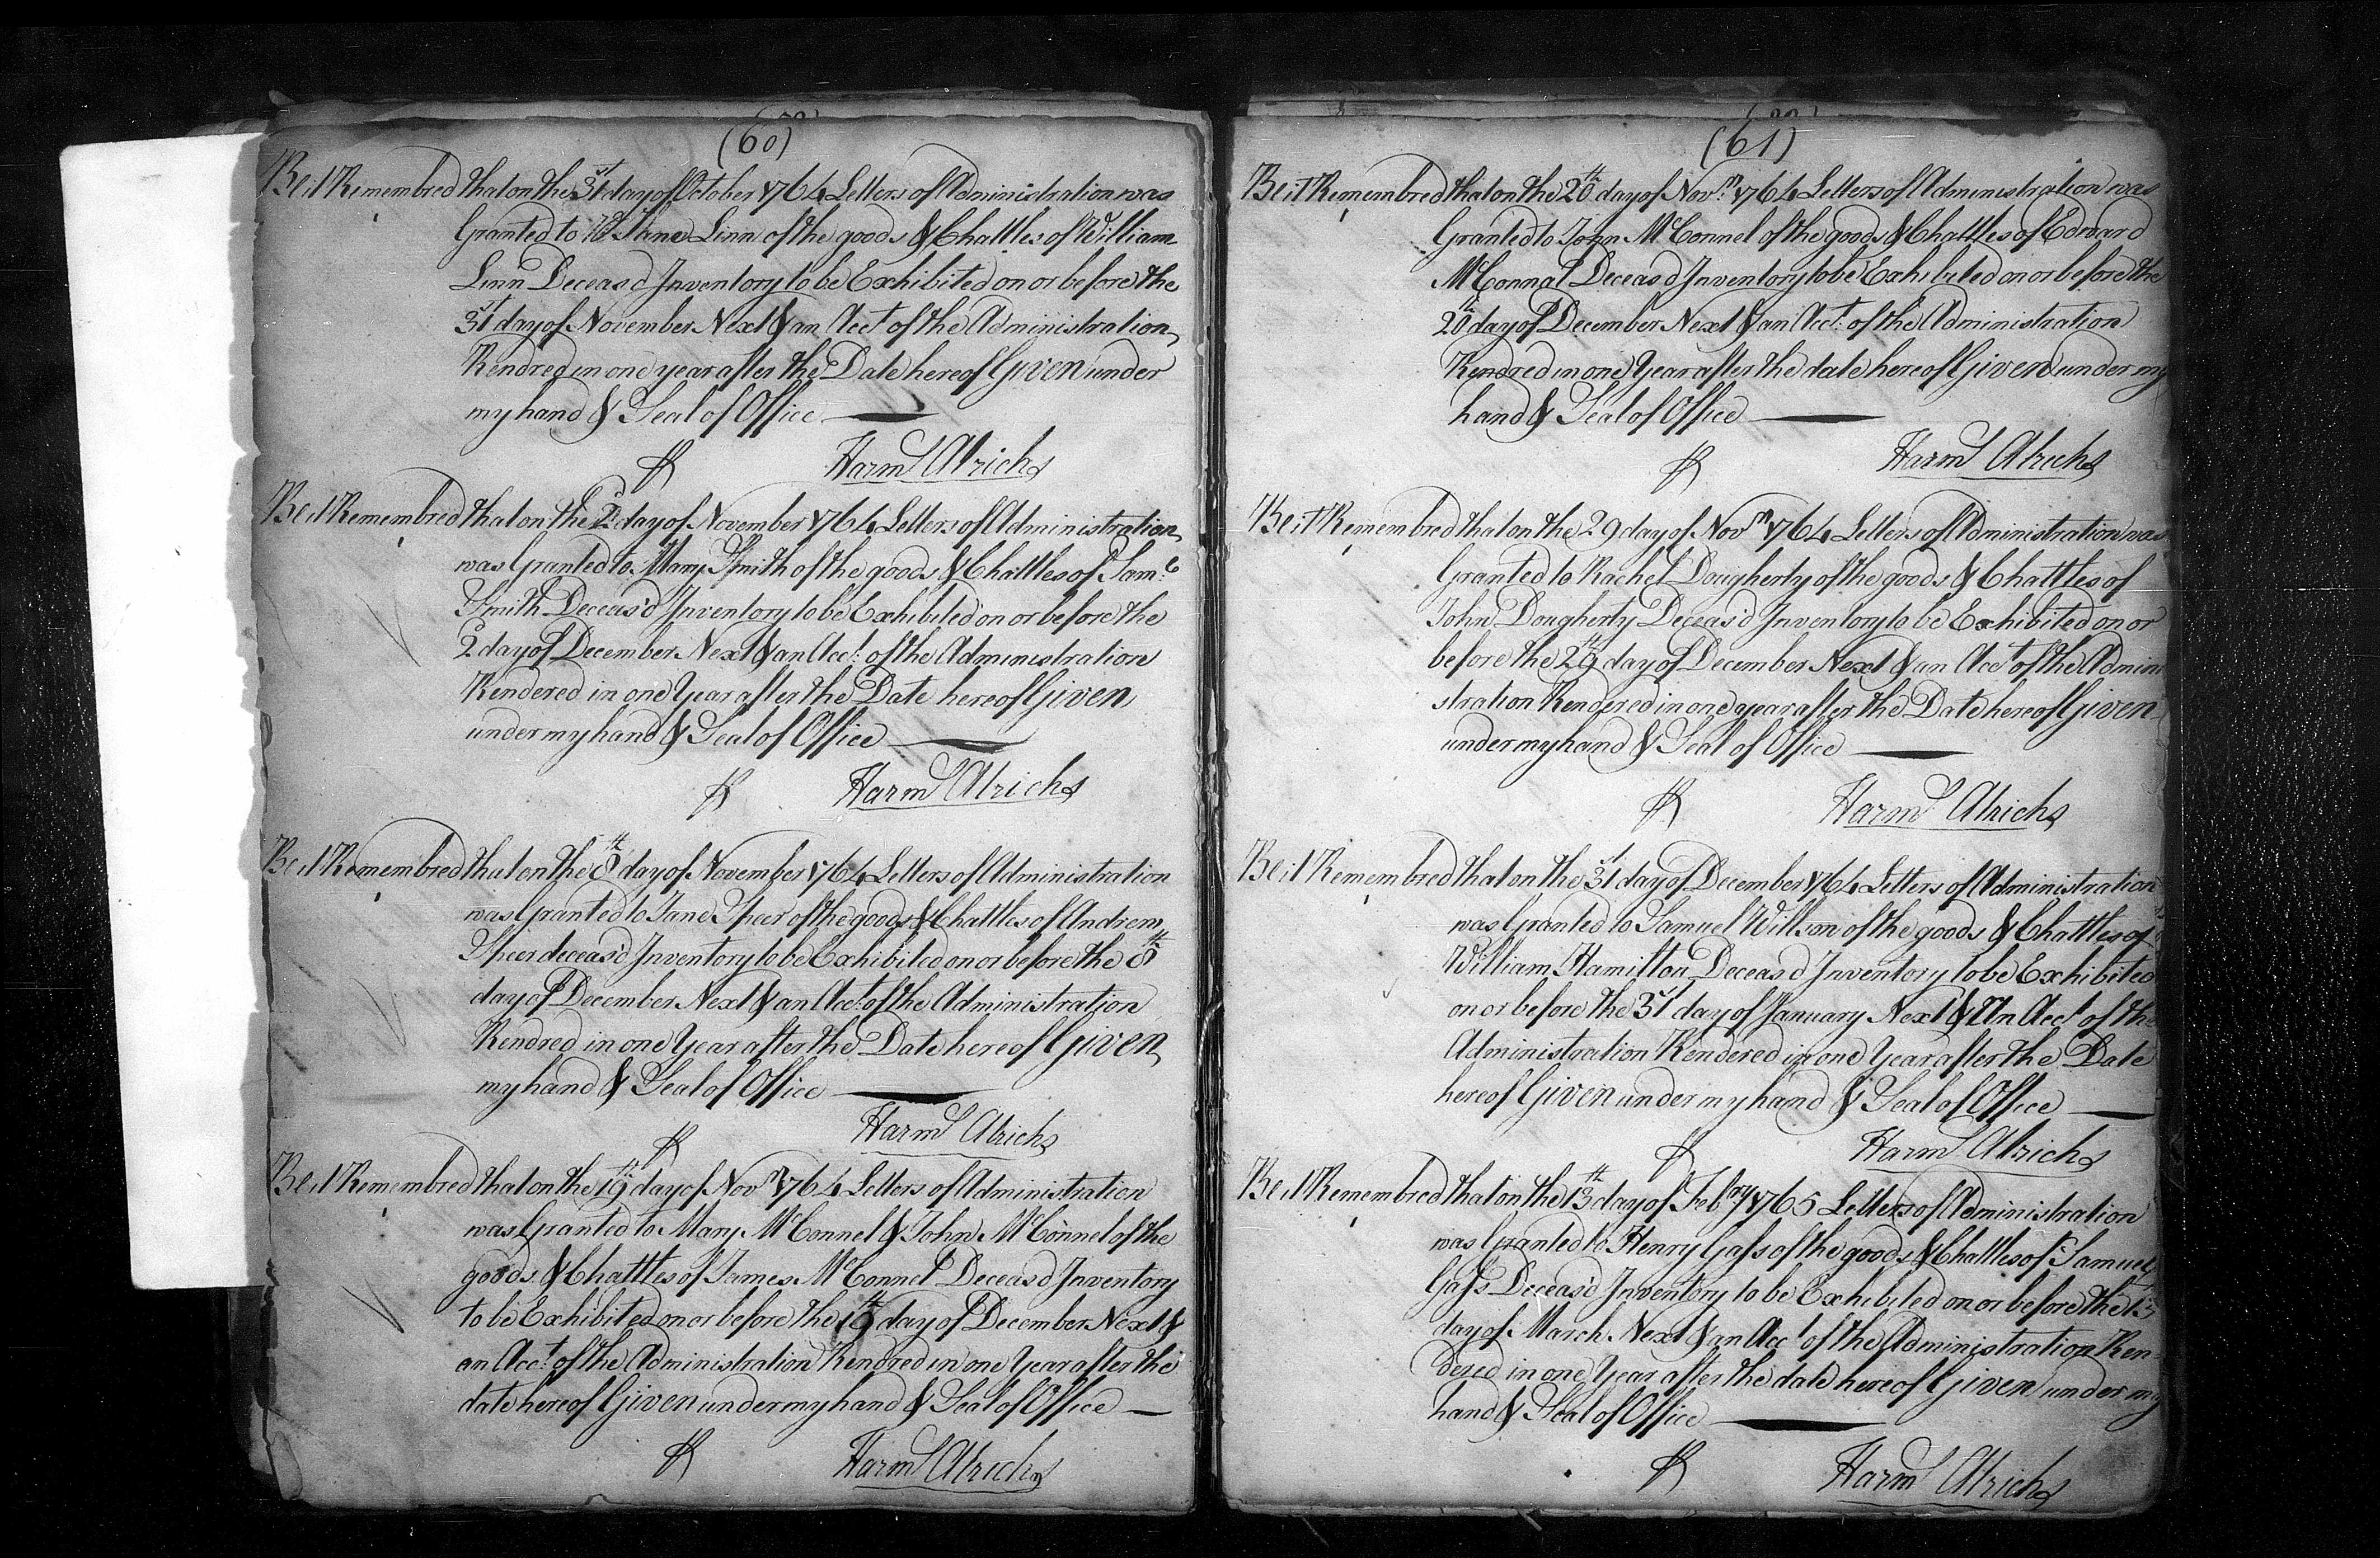 (60)
Be it Remembred that on the 31st day of October 1764 Letters of Administration was
Granted to Jane Linn of the goods & Chattles of William
Linn Deceas'd Inventory to be Exhibited on or before the
31st day of November Next & an Acct of the Administration
Rendred in one year after the Date hereof Given under
my hand & Seal of Office
Harms Alrichs
Be it Remembred that on the 2d day of November 1764 Letters of Administration
was Granted to Mary Smith of the goods & Chattles of Saml
Smith Deceas'd Inventory to be Exhibited on or before the
2d day of December Next & an Acct of the Administration
Rendered in one Year after the Date hereof Given
under my hand & Seal of Office
Harms Alrichs
Be it Remembred that on the 8th day of November 1764 Letters of Administration
was Granted to Jane Speer of the goods & Chattles of Andrew
Speer deceas'd Inventory to be Exhibited on or before the 8th
day of December Next & an Acct of the Administration
Rendred in one Year after the Date hereof Given
my hand & Seal of Office
Harms Alrichs
Be it Remembred that on the 19th day of Novm 1764 Letters of Administration
was Granted to Mary McConnel & John McConnel of the
goods & Chattles of James McConnel Deceas'd Inventory
to be Exhibited on or before the 19th day of December Next &
an Acct of the Administration Rendred in one Year after the
date hereof Given under my hand & Seal of Office
Harms Alrichs
(61)
Be it Remembred that on the 20th day of Novm 1764 Letters of Administration was
Granted to John McConnel of the goods & Chattles of Edward
McConnal Deceas'd Inventory to be Exhibited on or before the
20th day of December Next & an Acct of the Administration
Rendred in one Year after the date hereof Given under my
hand & Seal of Office
Harms Alrichs
Be it Remembred that on the 29 day of Novm 1764 Letters of Administration was
Granted to Rachel Dougherty of the goods & Chattles of
John Dougherty Deceas'd Inventory to be Exhibited on or
before the 29th day of December Next & an Acct of the Admini
stration Rendered in one year after the Date hereof Given
under my hand & Seal of Office
Harms Alrichs
Be it Remembred that on the 31st day of December 1764 Letters of Administration
was Granted to Samuel Willson of the goods & Chattles of
William Hamilton Deceas'd Inventory to be Exhibited
on or before the 31st day of January Next & An Acct of the
Administration Rendered in one Year after the Date
hereof Given under my hand & Seal of Office
Harms Alrichs
Be it Remembred that on the 13th day of Febry 1765 Letters of Administration
was Granted to Henry Gass of the goods & Chattles of Samuel
Gass Deceas'd Inventory to be Exhibited on or before the 13
day of March Next & an Acct of the Administration Ren
dered in one Year after the date hereof Given under my
hand & Seal of Office
Harms Alrichs